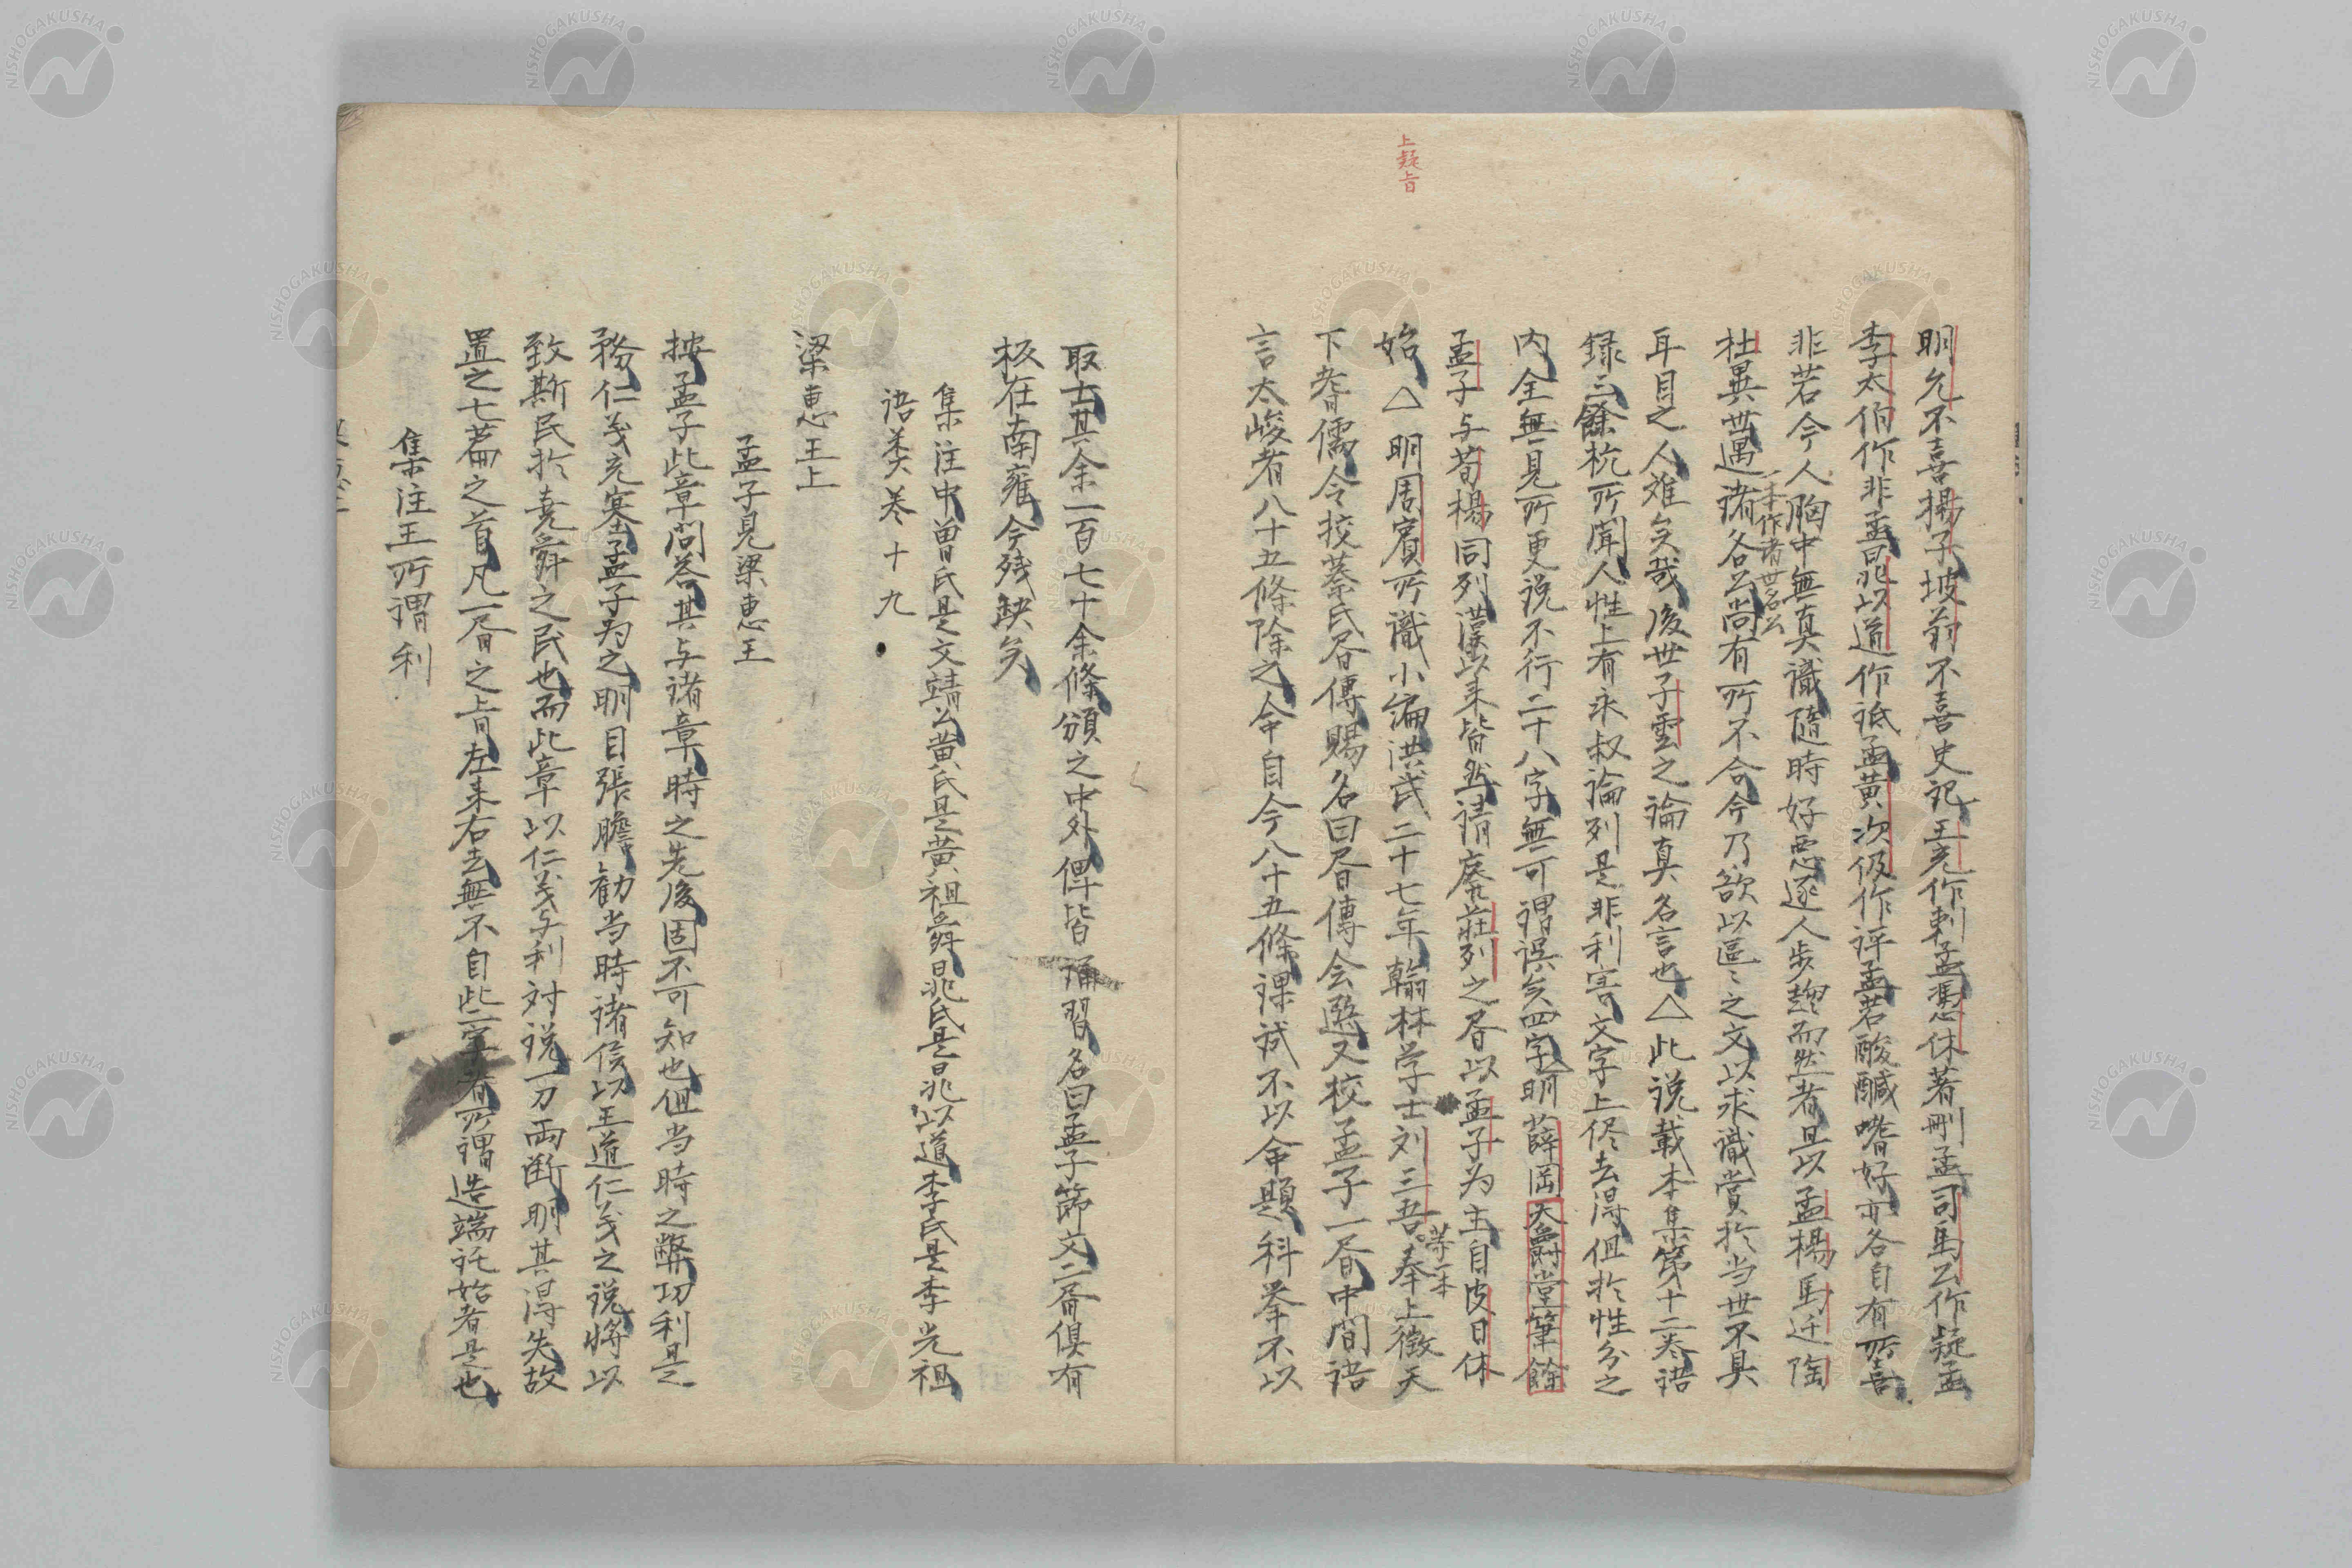 明允不喜揚子坡翁不喜史記王充作刺孟馮休著刪孟司馬公作疑孟
李太伯作非孟晁以道作詆孟黄次伋作評孟若酸鹹嗜好亦各自有所喜
非若今人胸中無真識隨時好悪逐人步趨而然者是以孟楊馬迁陶
杜異世遇諸名公尚有所不合今乃欲以區〻之文以求識賞於当世不具
一本作者世名公
耳目之人难矣哉後世子雲之論真名言也△此説載本集第十二巻語
録三餘杭所聞人性上有永叔論列是非利害文字上侭去得但於性分之
内全無見所更説不行二十八字無可謂誤矣四字明薛岡天爵堂筆餘
孟子与荀楊同列漢以来皆然請廃莊列之昏以孟子为主自皮日休
始△明周賓所識小編洪武二十七年翰林学士刘三吾奉上徴天
等一本
下耆儒令校蔡氏昏傳賜名曰昏傳会選又校孟子一昏中間語
言太峻者八十五條除之命自今八十五條課試不以命題科挙不以
上疑旨
取士其余一百七十余條頒之中外俾皆誦習名曰孟子節文二昏俱有
板在南雍今残缺矣
集注中曽氏是文靖公黄氏是黄祖舜晁氏是晁以道李氏是李光祖
語类巻十九
梁恵王上
孟子見梁恵王
按孟子此章問答其与諸章時之先後固不可知也但当時之弊功利是
務仁义充塞孟子为之明目張膽勧当時諸侯以王道仁义之説將以
致斯民於尭舜之民也而此章以仁义与利対説一刀両断明其得失故
置之七萹之首凡一昏之旨左来右去無不自此二字者所謂造端託始者是也
集注王所謂利